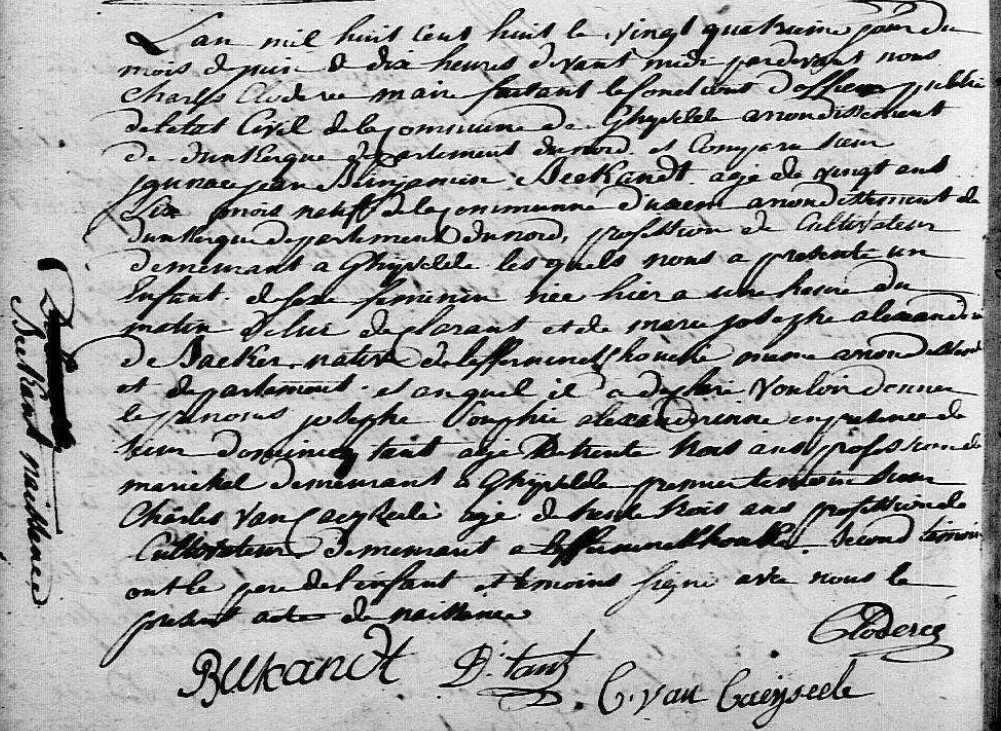 L'an mil huit cent huit le vingt quatrieme jour du
mois de juin a dix heures devant midi pardevant nous
Charles Cloderee maire faisant les fonctions d'officier public
de l'etat Civil de la commune de Ghyvelde arrondissement
de dunkerque departement du nord est comparu sieur
jgnace jean Binjamin Beekandt age de vingt ans
six mois natiff de la communne d'uxem arrondissement de
dunkerque departement du nord, profession de Cultivateur
demeurant a Ghyvelde les quels nous a presenté un
Enfant de sexe feminin née hier a une heure du
matin de lui declarant et de marie josephe alexandrin
de Backer native de arrondissement
et departement et auquel il a declaré vouloir donner
les prenoms josephe Souphie alexandrienne en presence de
sieur dominicq tant age de trente trois ans profession de
marichal demeurant a Ghyvelde premier temoin sieur
Charles Van Caeyseele age de trente trois ans profession de
Cultivateur demeurant a second temoin
ont le pere de l'enfant et temoins signé avec nous le
present acte de naissance
Clodereq
Beekandt D. tant C. van Caeyseele
Beekandt naissance